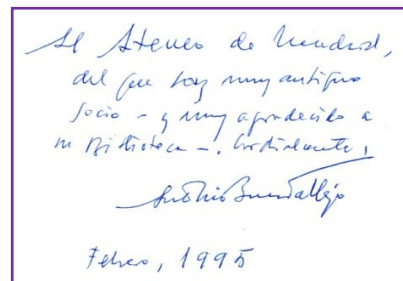 Al Ateneo de Madrid,
del que soy muy antiguo
socio - y muy agradecido a
su Biblioteca -. Cordialmente,
Antonio Buero Vallejo
Febrero, 1995